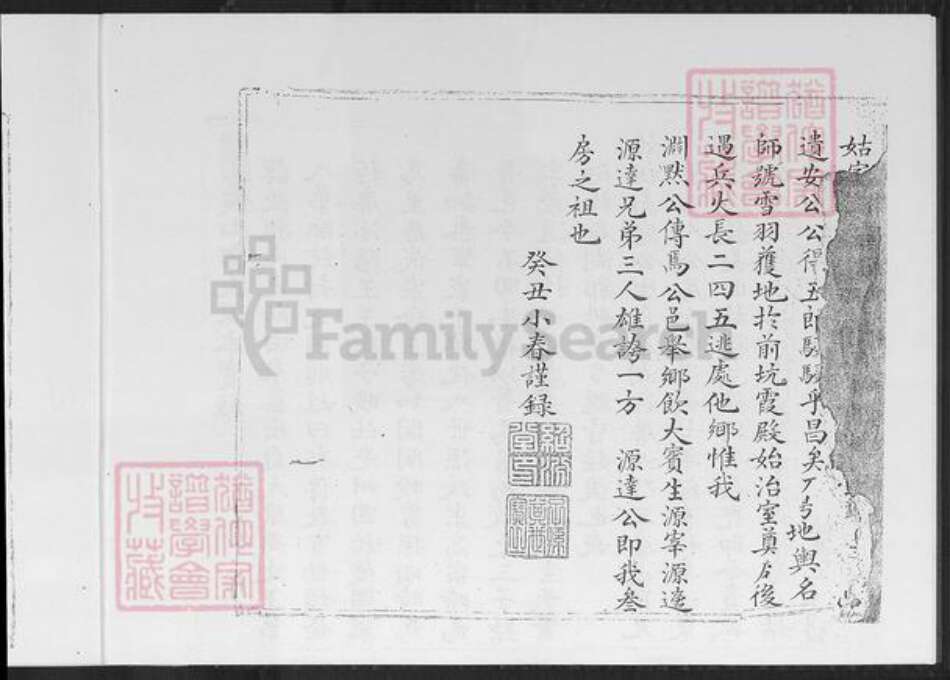 姑
遺安公公得五郎駸駸乎昌矣 地輿名
師號雪羽獲地扵前坑霞殿始治室奠后後
遇兵火長二四五逃處他鄉惟我
淵默公傳馬公邑舉鄉飲大賓生源宰源逵
源達兄弟三人雄誇一方 源達公即我叁
房之祖也
癸丑小春謹録
FamilySearch
譜學會
收藏